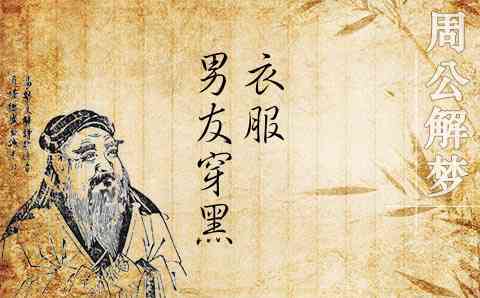 周公解梦
男友穿黑
衣服